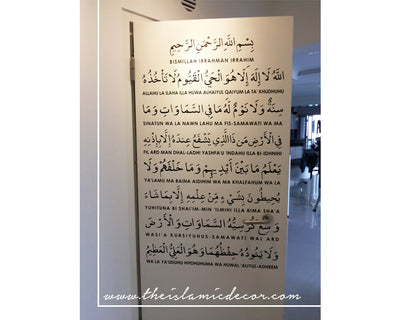 بِسْمِ اللَّهِ الرَّحْمَنِ الرَّحِيمِ
BISMILLAH IRRAHMAN IRRAHIM
اللَّهُ لَا إِلَهَ إِلَّا هُوَ الْحَيُّ الْقَيُّومُ لَا تَأْخُذُهُ
ALLAHU LA ILAHA ILLA HUWA ALHAIYUL QAIYUM LA TA' KHUDHUHU
سِنَةٌ وَلَا نَوْمٌ لَهُ مَا فِي السَّمَاوَاتِ وَمَا
SINATUN WA LA NAWN LAHU MA FIS-SAMAWATI WA MA
فِي الْأَرْضِ مَنْ ذَا الَّذِي يَشْفَعُ عِنْدَهُ إِلَّا بِإِذْنِهِ
FIL ARD MAN DHAL-LADHI YASHFA'U 'INDAHU ILLA BI-IDHNIHI
يَعْلَمُ مَا بَيْنَ أَيْدِيهِمْ وَمَا خَلْفَهُمْ وَلَا
YA'LAMU MA BAINA AIDIHIM WA MA KHALFAHUM WA LA
يُحِيطُونَ بِشَيْءٍ مِنْ عِلْمِهِ إِلَّا بِمَا شَاءَ
YUHITUNA BI SHAI'IM-MIN 'ILMIHI ILLA BIMA SHA'A
وَسِعَ كُرْسِيُّهُ السَّمَاوَاتِ وَالْأَرْضَ
WASI'A KURSIYUHUS-SAMAWATI WAL ARD
وَلَا يَئُودُهُ حِفْظُهُمَا وَهُوَ الْعَلِيُّ الْعَظِيمُ
WA LA YA'UDUHU HIPDHUHUMA WA HUWAL 'ALIYUL-ADHEEM
www.theislamicdecor.com